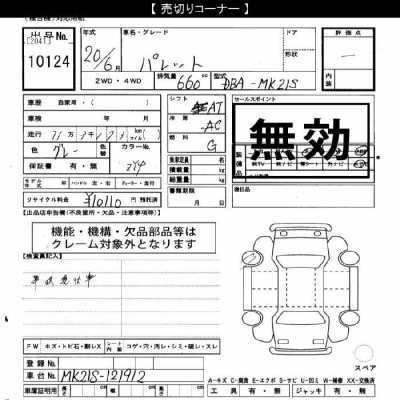 【 売切りコーナー 】
出品No.
[2041]
10124
年式
20/6月
車名・グレード
パレット
ドア
形状
評価点
2WD・4WD
排気量
660cc
型式
DBA-MK21S
内装
車歴 自家用・( )
車検 年 月
走行
色 グレー
カラーNo.
保証書 有・無
シフト AT
冷房 AC
燃料 G
乗車定員
積載量 kg
総重量 kg
書類期限
月 日
セールスポイント
無効
後日品
リサイクル料金 ¥10110 円 預託済
【出品店申告欄(不良箇所・欠品・注意事項等)】
機能・機構・欠品部品等は
クレーム対象外となります
【検査員記入】
FW キズ・トビ石・割レX
シート内張 コゲ・穴・汚レ・シミ・破レ・スレ
登録No.
車台No. MK21S-121912
車庫証明用 長さ cm 幅 cm 高さ cm
スペア
A-キズ C-腐食 E-エクボ S-サビ U-凹ミ W-補修 XX-交換済
工具 有・無 ジャッキ 有・無